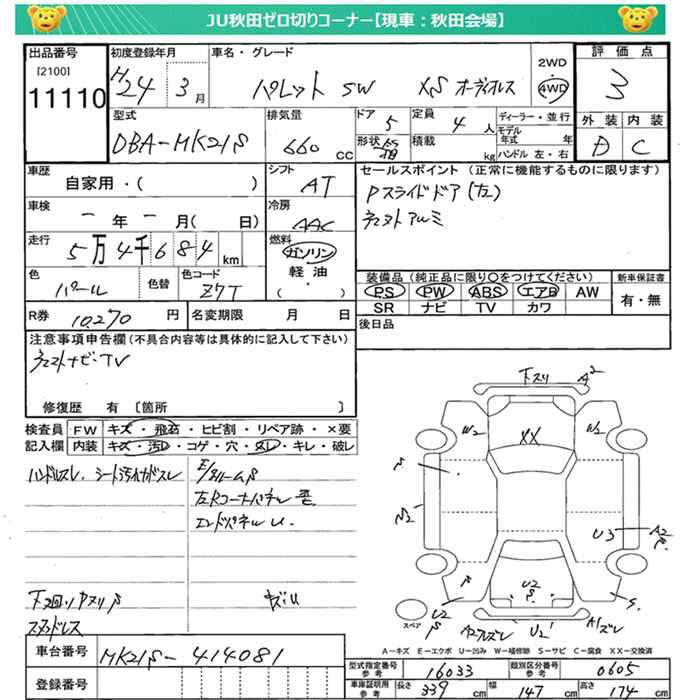 JU秋田ゼロ切りコーナー【現車：秋田会場】
出品番号
[2100]
11110
初度登録年月
H24 3月
車名・グレード
パレット SW XS オーディオレス
2WD
4WD
評価点
3
型式
DBA-MK21S
排気量
660 cc
ドア 5
形状
定員 4 人
積載 kg
ディーラー・並行
モデル年式 年
ハンドル 左・右
外装 内装
D C
車歴
自家用・( )
シフト
AT
セールスポイント (正常に機能するものに限ります)
Pスライドドア(左)
車検
年 月( 日)
冷房
AAC
走行
5万4千684 km
燃料
ガソリン
軽油・
( )
色
パール
色替
色コード
Z7T
装備品 (純正品に限り○をつけてください)
PS PW ABS エアB AW
SR ナビ TV カワ
新車保証書
有・無
R券 10,270 円
名変期限 月 日
後日品
注意事項申告欄(不具合内容等は具体的に記入して下さい)
修復歴 有 〔箇所 〕
検査員記入欄
FW キズ・飛石・ヒビ割・リペア跡・×要
内装 キズ・汚レ・コゲ・穴・スレ・キレ・破レ
ハンドルスレ
エンドパネルU
下スリ A2
W2 XX W2
S
U3 A2
U2
S
スペア
U2 A1ズレ
A-キズ E-エクボ U-凹み W-補修跡 S-サビ C-腐食 XX-交換済
車台番号 MK21S-414081
登録番号
型式指定番号 参考 16033
類別区分番号 参考 0605
車庫証明用 参考 長さ 339 cm 幅 147 cm 高さ 174 cm